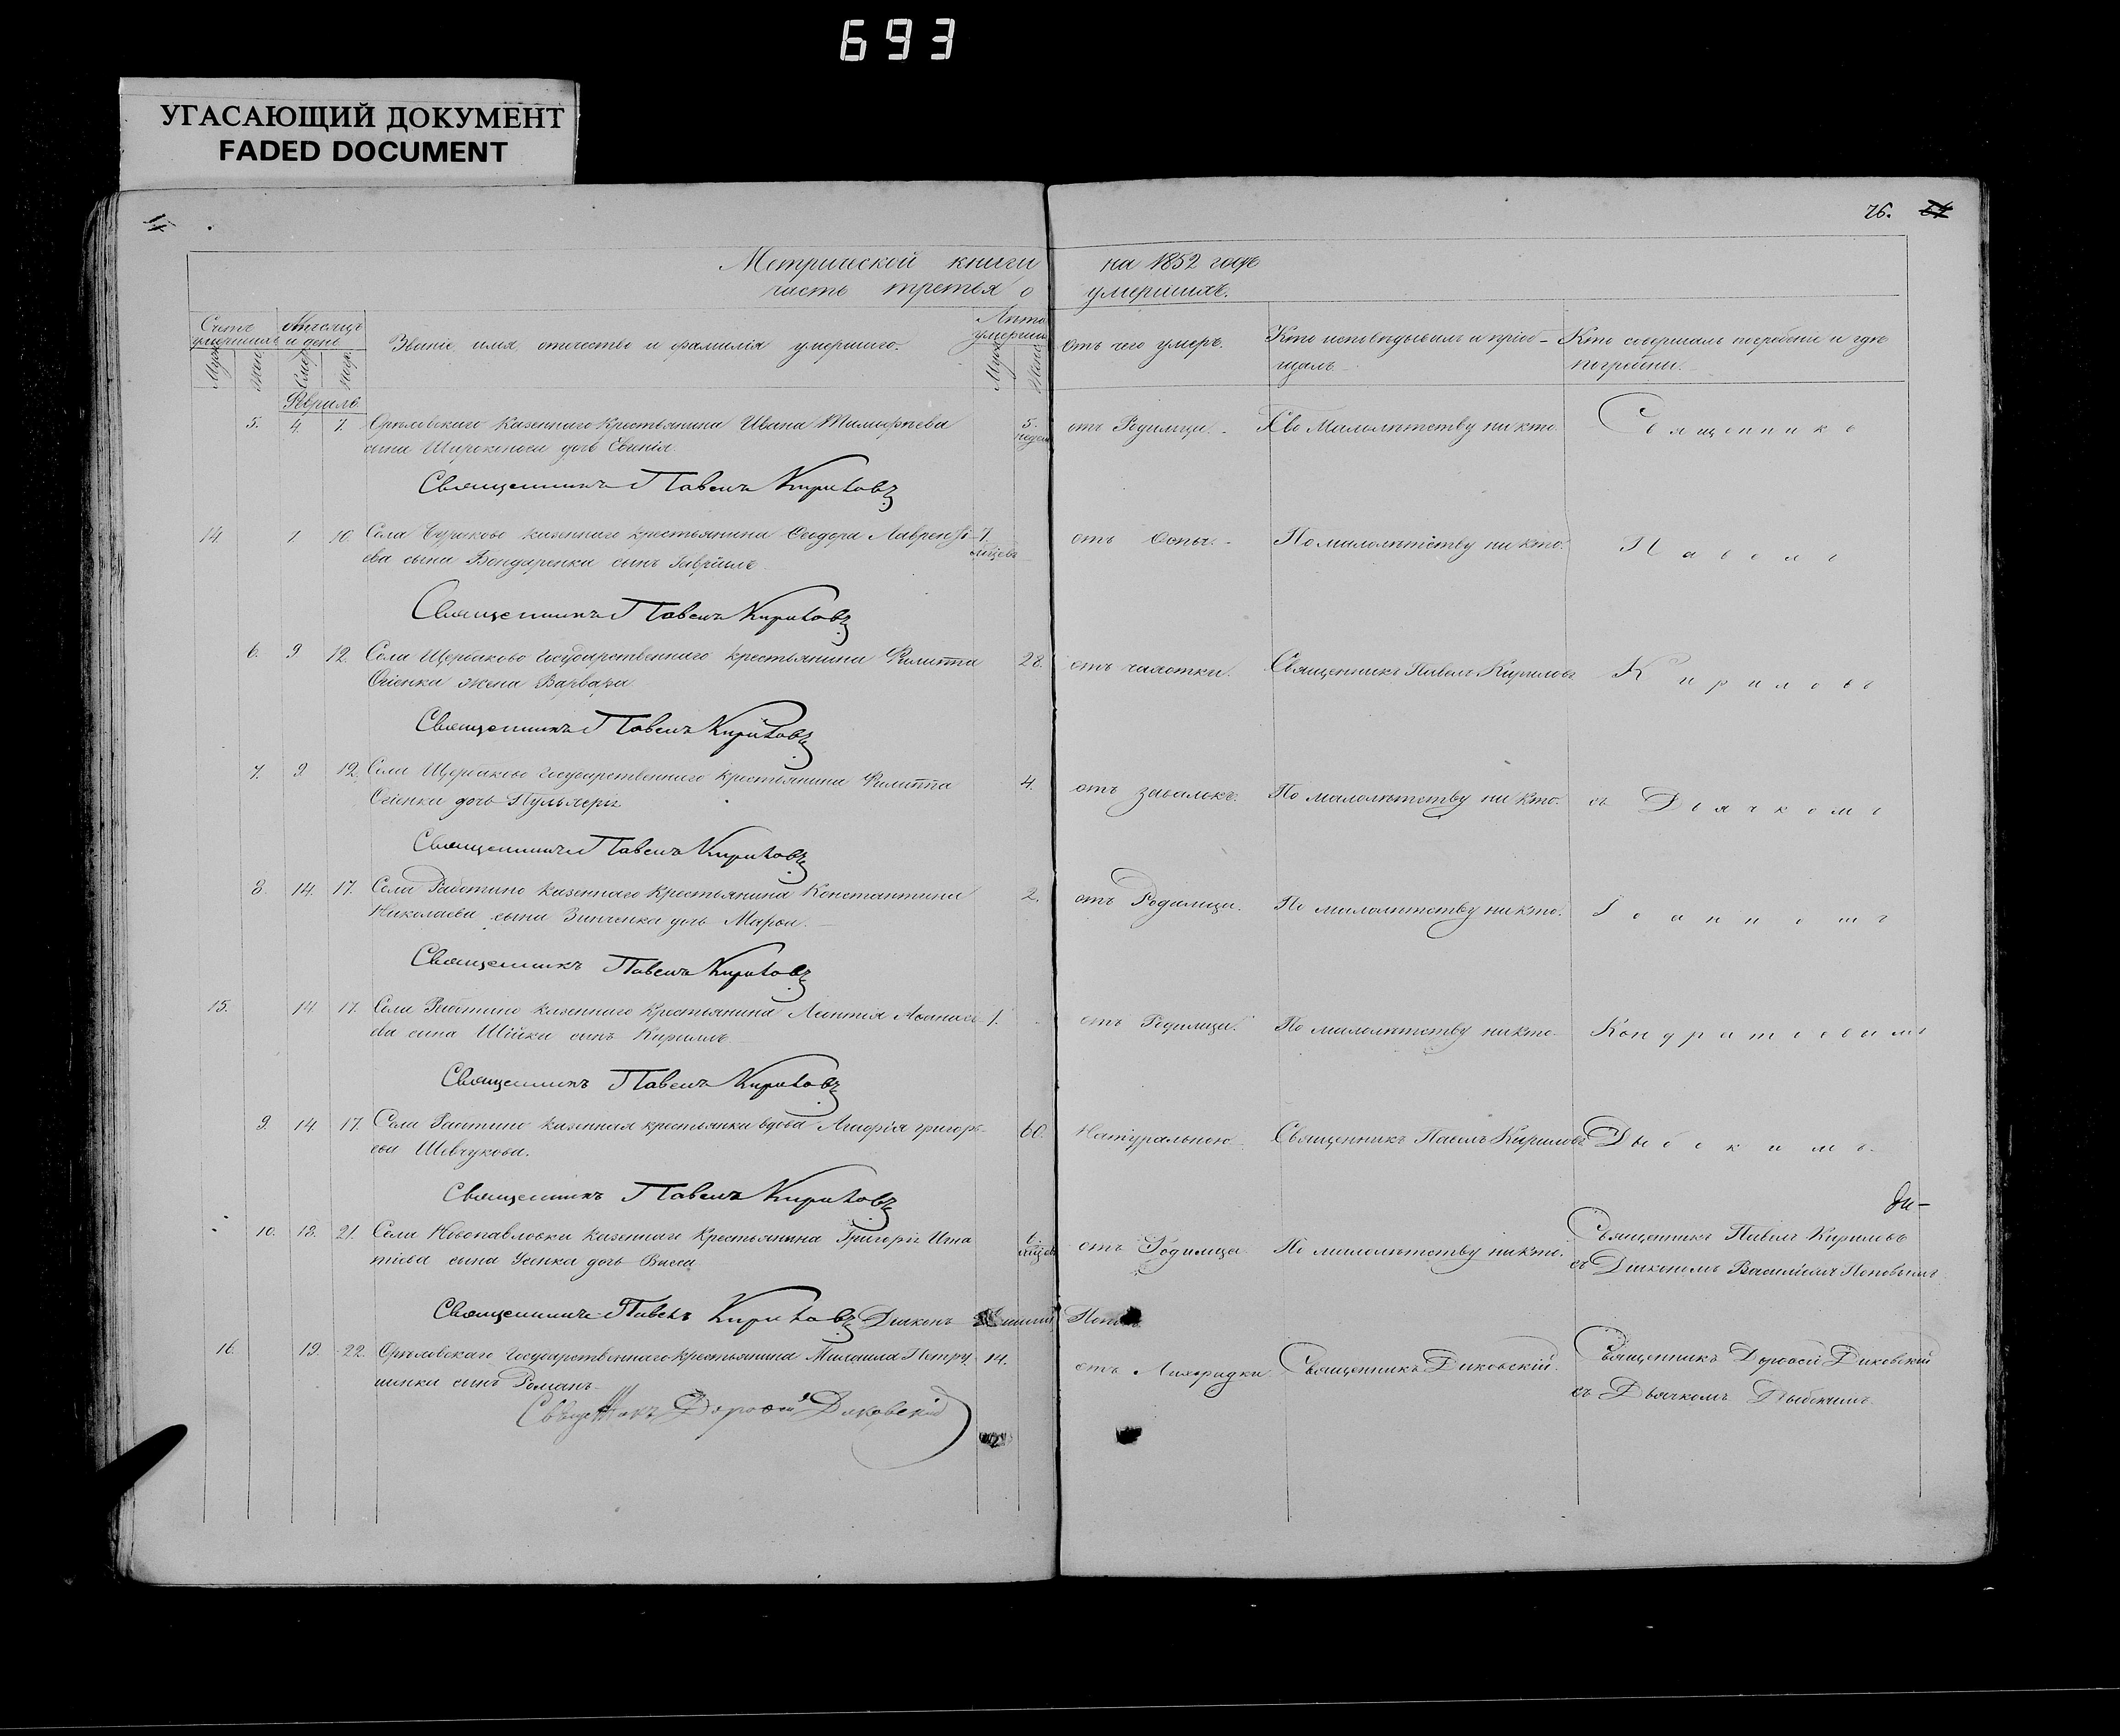 693
УГАСАЮЩИЙ ДОКУМЕНТ
FADED DOCUMENT
76.
Метрической книги на 1852 годъ
часть третья о умершихъ.
Счетъ умершихъ
Мѣсяцъ и день
Званіе, имя отчество и фамилія умершаго.
Лѣта умершаго
отъ чего умеръ.
Кто исповѣдывалъ и пріобщалъ
Кто совершалъ погребеніе и гдѣ погребены.
Муж.
Жен.
Смер.
Погр.
Муж.
Жен.
Февраль
5. 4. 7. Орѣловскаго казеннаго крестьянина Ивана 5. недел. отъ Родимца. По Малолѣтству никто. Священникъ
сына Широконоса дочь
Священникъ Павелъ Кириловъ
14. 1 10. Села казеннаго крестьянина Ѳеодора Лаврентi- 7. мѣсцевъ отъ Оспы. По малолѣтству никто. Павелъ
ева сына Бондаренка сынъ Гавріилъ
Священникъ Павелъ Кириловъ
6. 9 12. Села Щербаково Государственнаго крестьянина Филиппа 28. отъ чахотки. Священникъ Павелъ Кириловъ Кириловъ
Огіенка жена Варвара
Священникъ Павелъ Кириловъ
7. 9. 12. Села Щербаково Государственнаго крестьянина Филиппа 4. отъ завалокъ. По малолѣтству никто. съ Дьячкомъ
Огіенка дочь Пульхерія
Священникъ Павелъ Кириловъ
8. 14. 17. Села Работино казеннаго крестьянина Константина 2. отъ Родимца. По малолѣтству никто. Іоанномъ
Николаева сына Зинченка дочь Марфа.
Священникъ Павелъ Кириловъ
15. 14 17. Села Работино казеннаго крестьянина Леонтія Аѳанась- 1. отъ Родимца. По малолѣтству никто. Кондратовымъ
ева сына Шійки сынъ Кирилъ
Священникъ Павелъ Кириловъ
9. 14. 17. Села Работино казенная крестьянка вдова Агафія Григорь- 60. Натуральною Священникъ Павелъ Кириловъ
ева Шевчукова.
Священникъ Павелъ Кириловъ
10. 18. 21. Села Новопавловки казеннаго Крестьянина Григорія Игна 6. мѣсцевъ отъ Родимца По малолѣтству никто. Священникъ Павелъ Кириловъ
тіева сына Усенка дочь Васса съ Діакономъ Василіемъ Поповымъ
Священникъ Павелъ Кириловъ Діаконъ
16. 19. 22. Орѣловскаго Государственнаго крестьянина Михаила Петру 14. отъ Лихорадки Священникъ Диковскій. Священникъ Дороѳей Диковскій
шинки сынъ Романъ съ Дьячкомъ
Священникъ Дороѳей Диковскій